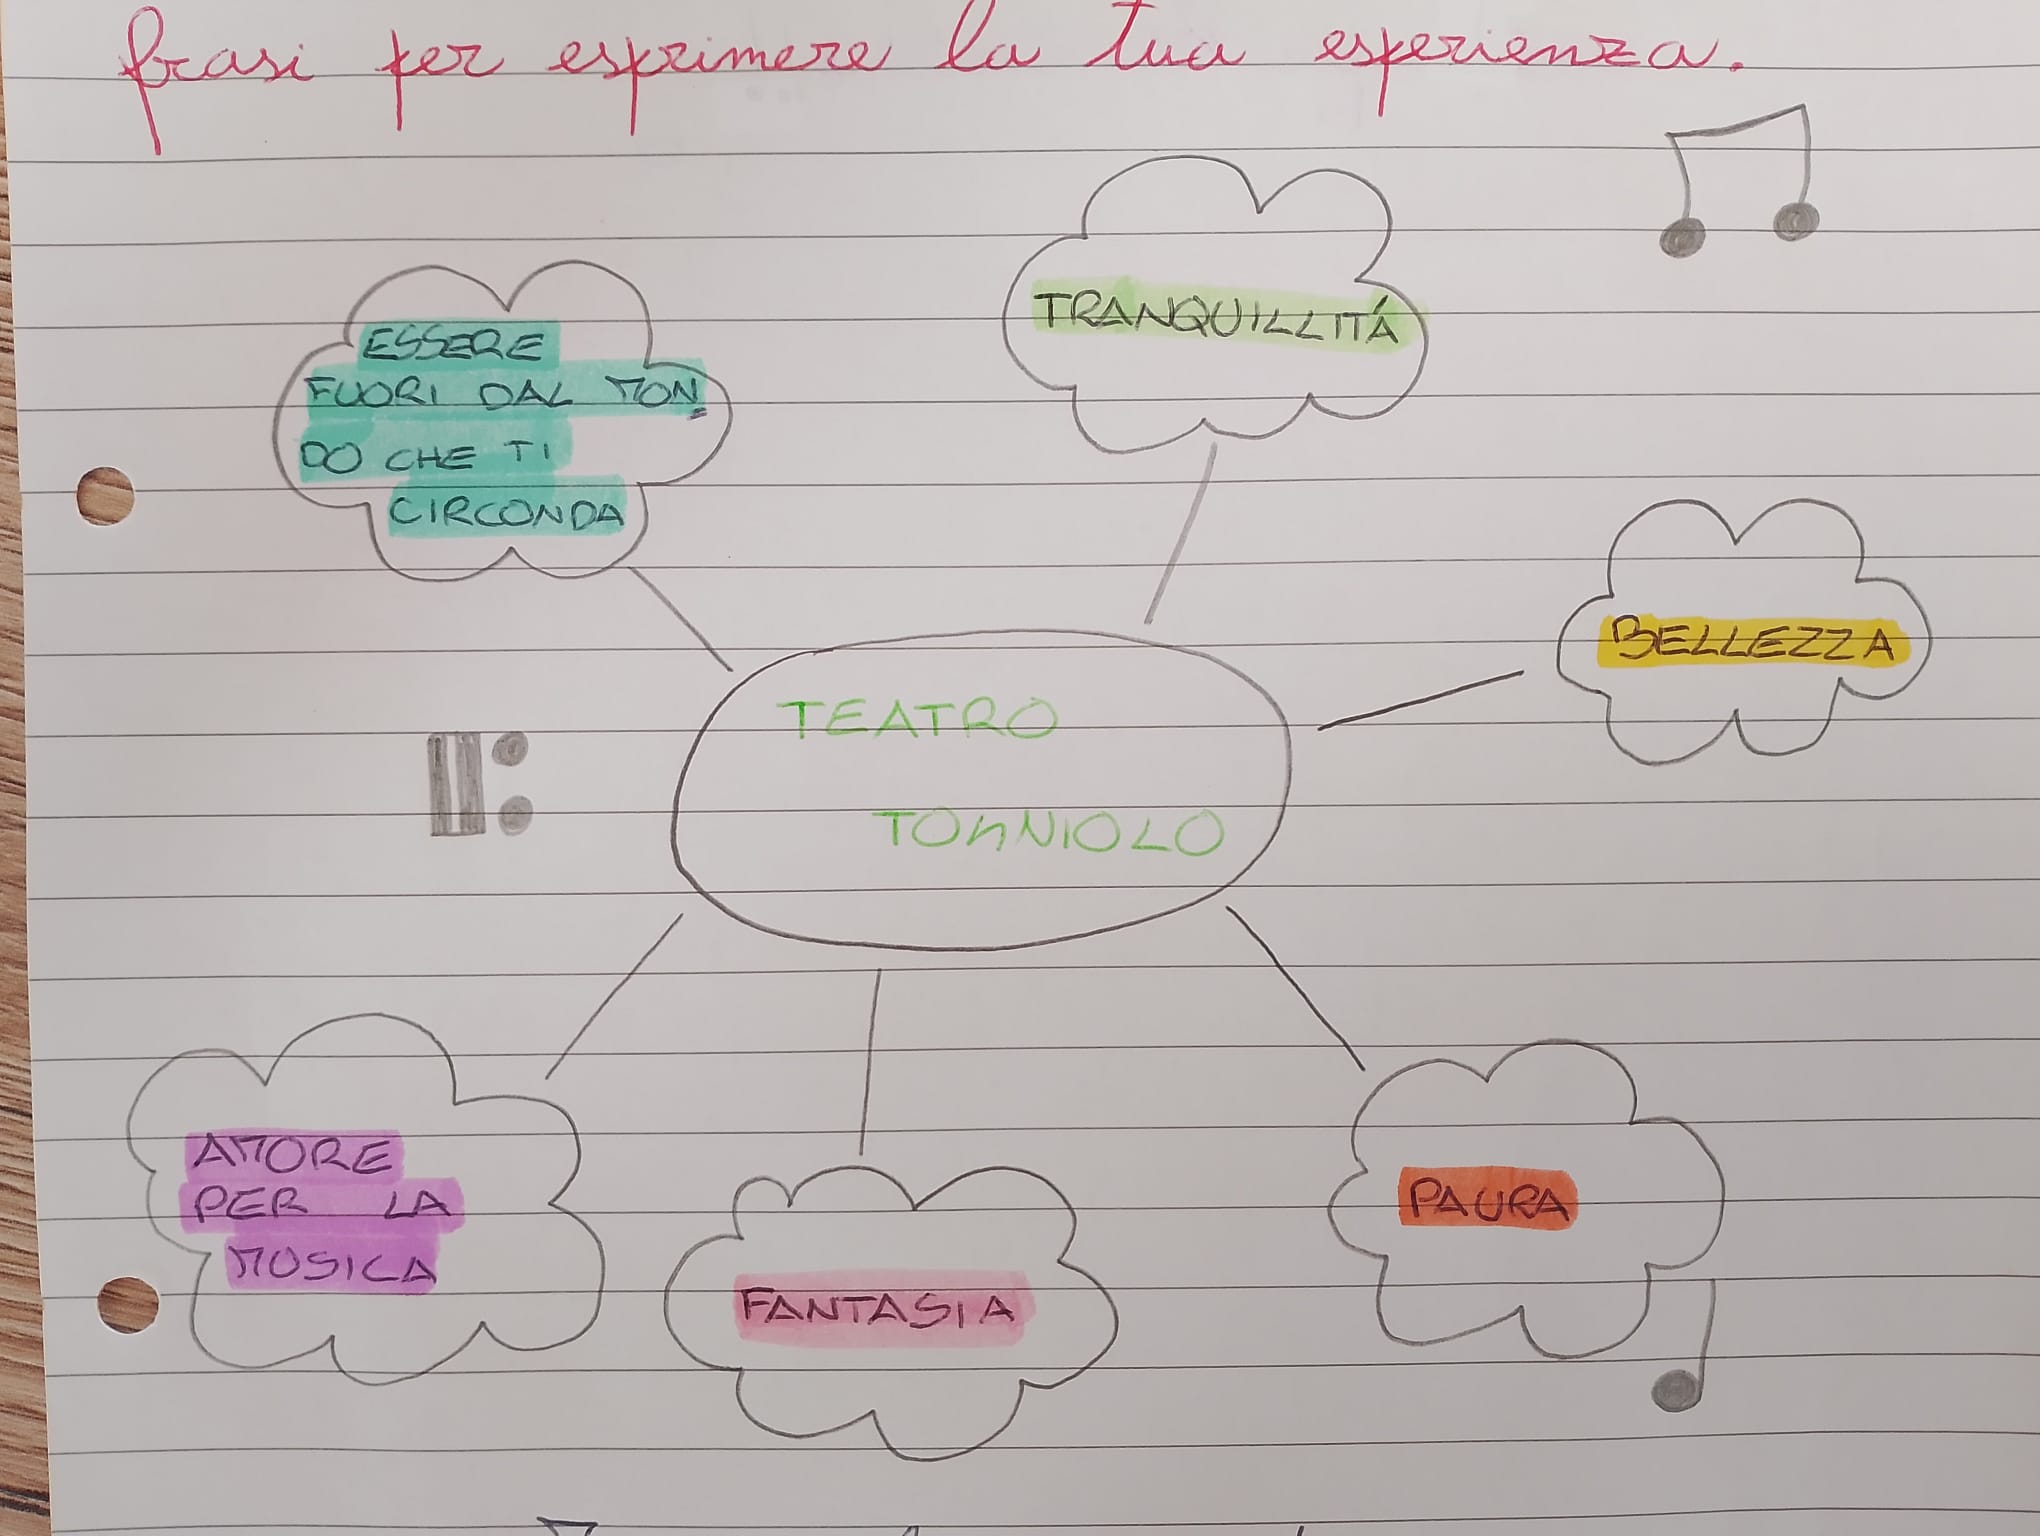 frasi per esprimere la tua esperienza.
TRANQUILLITÁ
ESSERE
FUORI DAL MON
DO CHE TI
CIRCONDA
BELLEZZA
TEATRO
TONNIOLO
AMORE
PER LA
MUSICA
FANTASIA
PAURA